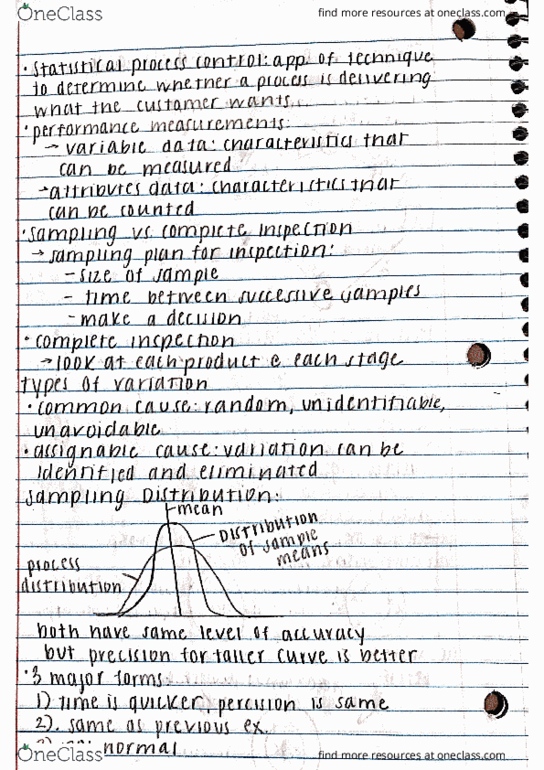 OneClass
find more resources at oneclass.com
• statistical process control: app. of technique
to determine whether a process is delivering
what the customer wants.
• performance measurements:
→ variable data: characteristics that
can be measured
→ attributes data: characteristics that
can be counted
• sampling vs complete inspection
→ sampling plan for inspection:
- size of sample
- time between successive samples
- make a decision
• complete inspection
→ look at each product @ each stage
types of variation
• common cause: random, unidentifiable,
unavoidable
• assignable cause: variation can be
identified and eliminated
sampling Distribution:
mean
DISTRIBUTION
of sample
means
process
distribution
both have same level of accuracy
but precision for taller curve is better
• 3 major forms
1) time is quicker, percision is same
2). same as previous ex.
normal
OneClass
find more resources at oneclass.com